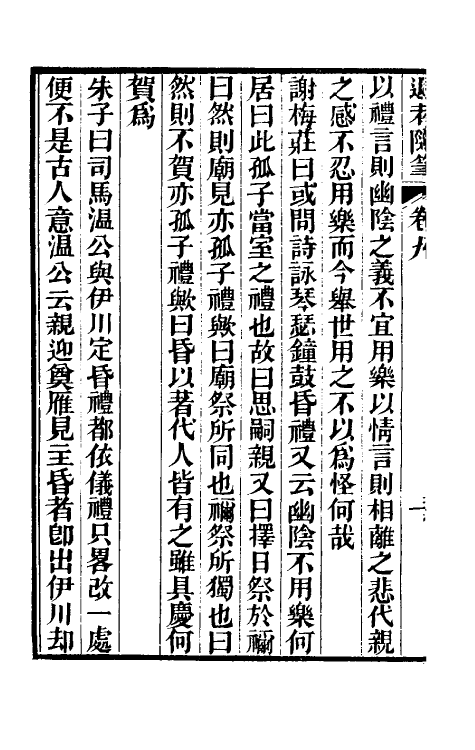 退菴隨筆 卷九
以禮言則幽陰之義不宜用樂以情言則相離之悲代親
之感不忍用樂而今舉世用之不以爲怪何哉
謝梅莊曰或問詩詠琴瑟鐘鼓昏禮又云幽陰不用樂何
居曰此孤子當室之禮也故曰思嗣親又曰擇日祭於禰
曰然則廟見亦孤子禮歟曰廟祭所同也禰祭所獨也曰
然則不賀亦孤子禮歟曰昏以著代人皆有之雖具慶何
賀爲
朱子曰司馬温公與伊川定昏禮都依儀禮只畧改一處
便不是古人意温公云親迎奠雁見主昏者卽出伊川却